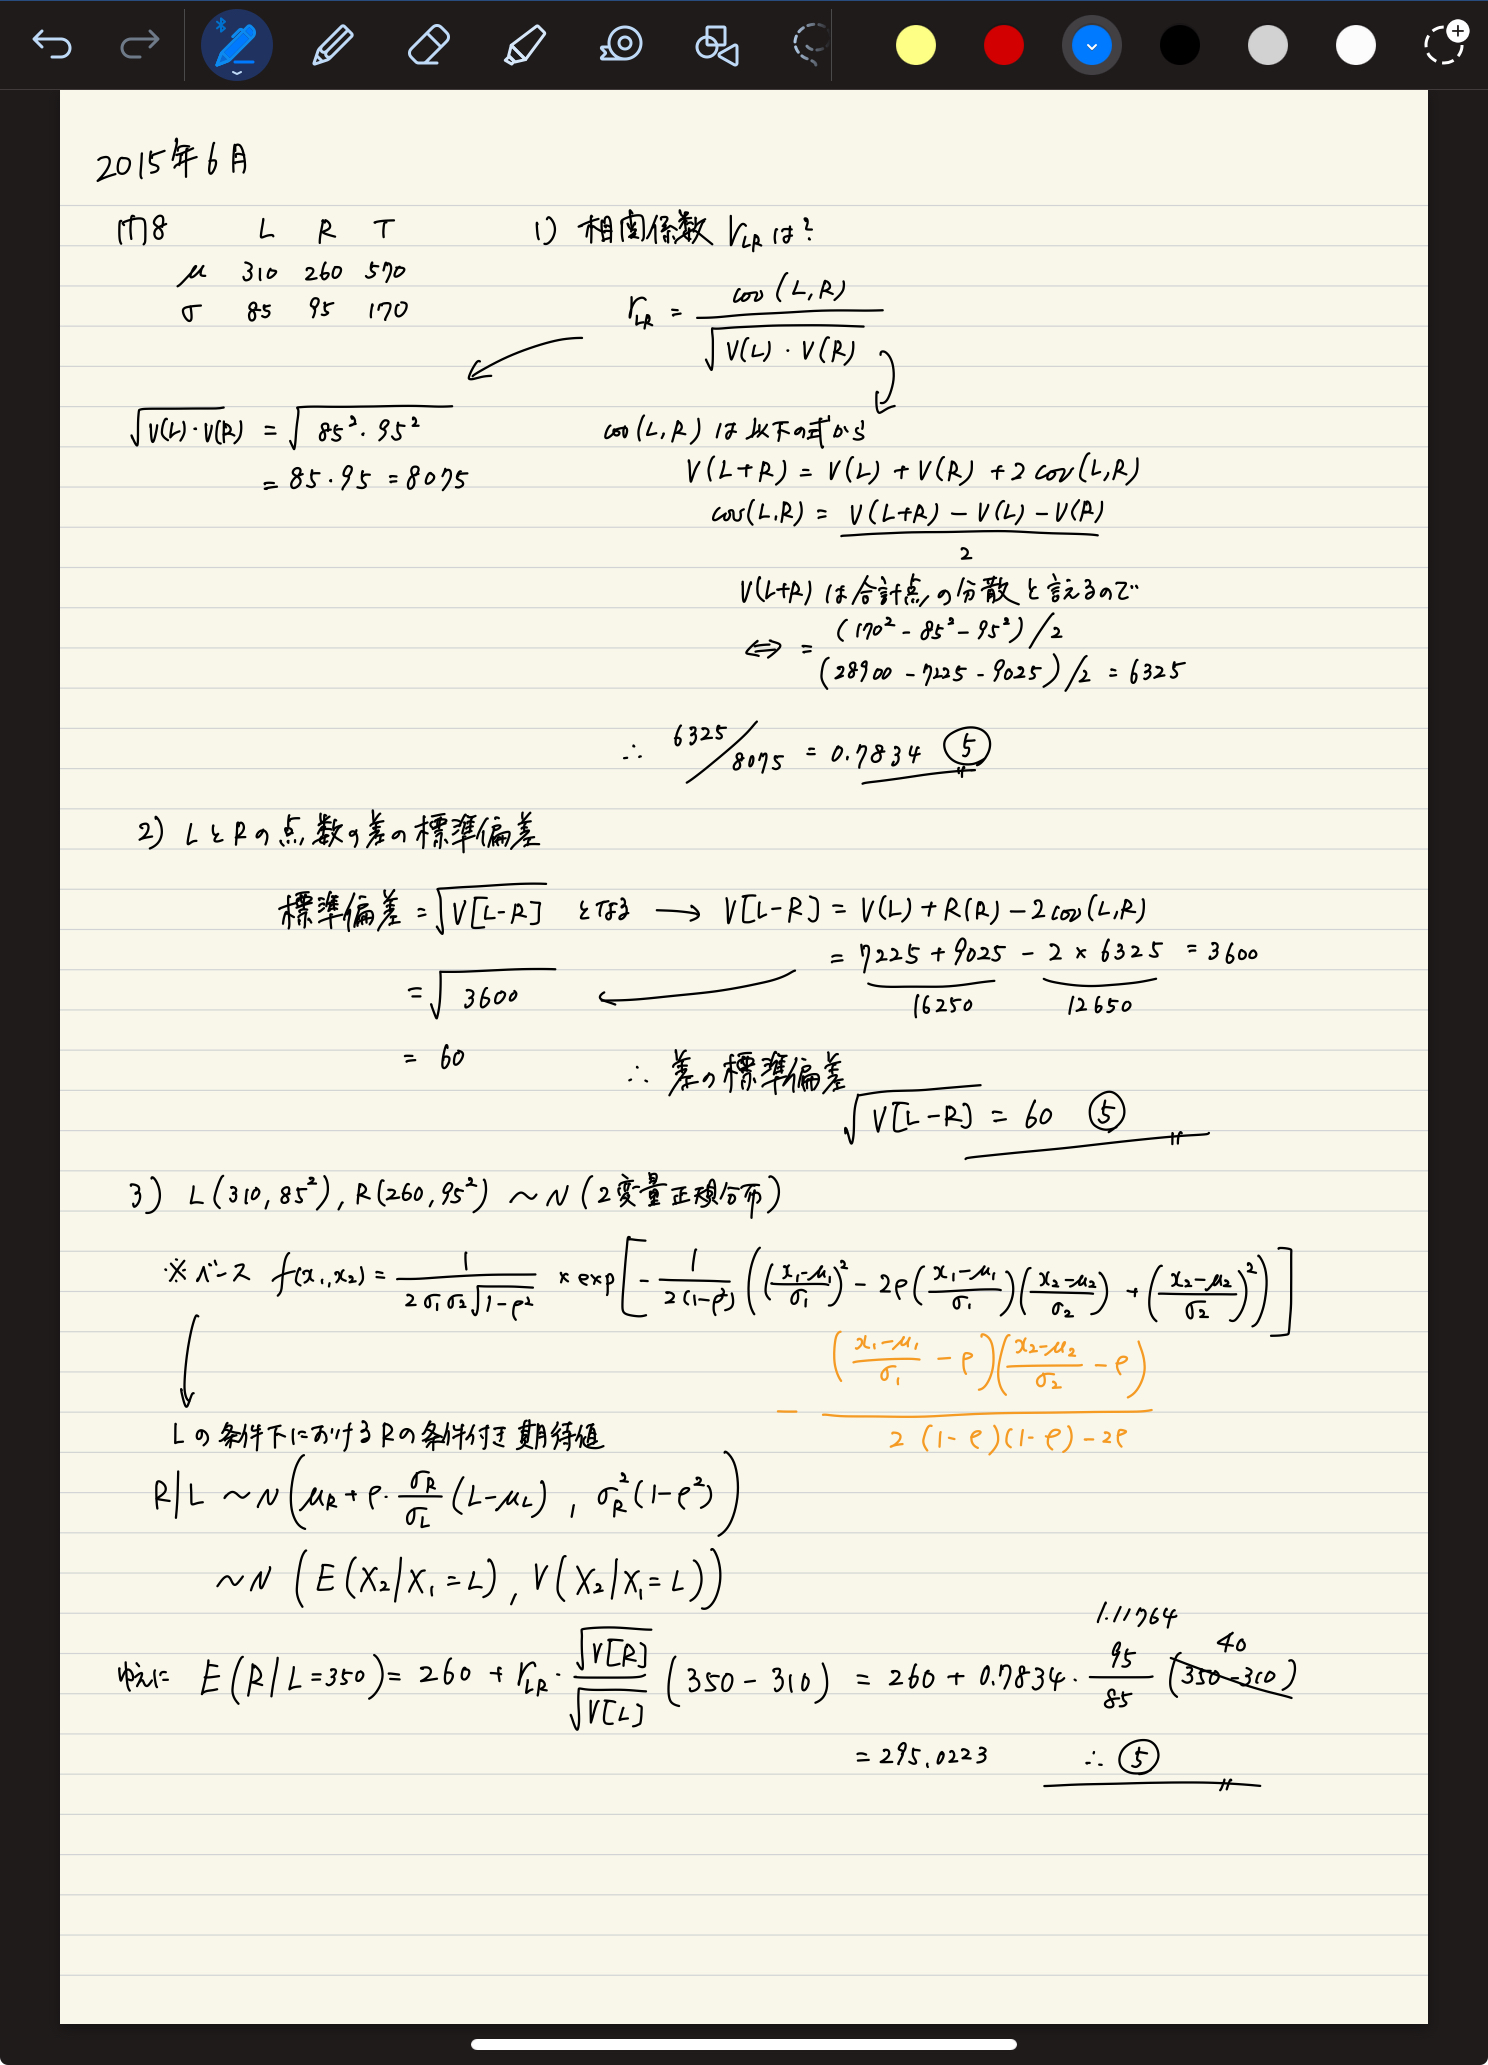 2015年6月
問8 L R T
μ 310 260 570
σ 85 95 170
1) 相関係数 r_LR は?
r_LR = cov(L,R) / √V(L)・V(R)
√V(L)・V(R) = √85²・95²
= 85・95 = 8075
cov(L,R) は 以下の式から
V(L+R) = V(L) + V(R) + 2cov(L,R)
cov(L,R) = V(L+R) - V(L) - V(R) / 2
V(L+R) は合計点の分散と言えるので
⇔ = (170² - 85² - 95²)/2
(28900 - 7225 - 9025)/2 = 6325
∴ 6325/8075 = 0.7834 ⑤
2) LとRの点数の差の標準偏差
標準偏差 = √V[L-R] となる → V[L-R] = V(L) + R(R) - 2cov(L,R)
= 7225 + 9025 - 2 × 6325 = 3600
16250 12650
= √3600
= 60
∴ 差の標準偏差
√V[L-R] = 60 ⑤
3) L(310, 85²), R(260, 95²) ~ N (2変量正規分布)
※ベース f(x₁, x₂) = 1 / 2σ₁σ₂√1-ρ² × exp[ - 1 / 2(1-ρ²) ( (x₁-μ₁ / σ₁)² - 2ρ(x₁-μ₁ / σ₁)(x₂-μ₂ / σ₂) + (x₂-μ₂ / σ₂)² ) ]
- (x₁-μ₁ / σ₁ - ρ)(x₂-μ₂ / σ₂ - ρ) / 2(1-ρ)(1-ρ)-2ρ
Lの条件下におけるRの条件付き期待値
R|L ~ N(μ_R + ρ・σ_R / σ_L (L-μ_L), σ_R²(1-ρ²))
~ N (E(X₂|X₁=L), V(X₂|X₁=L))
ゆえに E(R|L=350) = 260 + r_LR・√V[R] / √V[L] (350-310) = 260 + 0.7834・95 / 85 (350-310)
1.11764 40
= 295.0223 ∴ ⑤